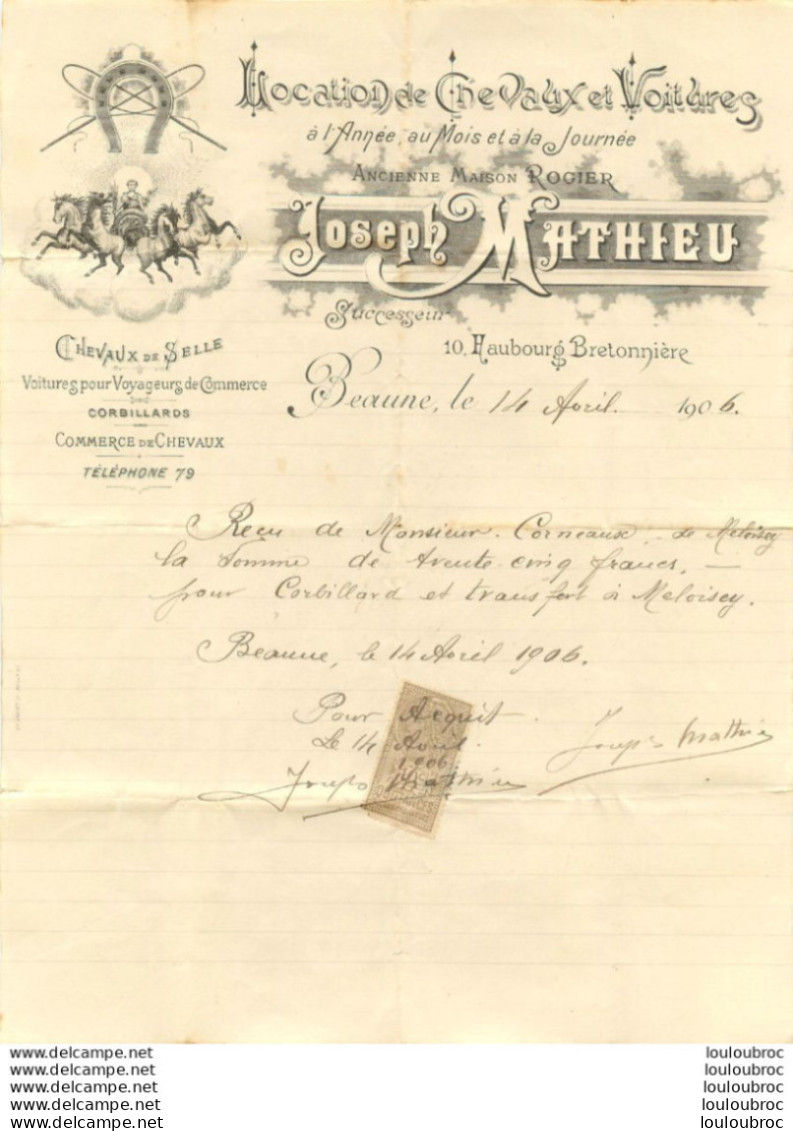 Location de Chevaux et Voitures
à l'Année, au Mois et à la Journée
Ancienne Maison Rogier
Joseph Mathieu
Successeur
10, Faubourg Bretonnière
Chevaux de Selle
Voitures pour Voyageurs de Commerce
Corbillards
Commerce de Chevaux
Téléphone 79
Beaune, le 14 Avril 1906.
Reçu de Monsieur Corneaux de Meloisey
la Somme de trente cinq francs, —
pour Corbillard et transfert à Meloisey.
Beaune, le 14 Avril 1906.
Pour Acquit.
Le 14 Avril
1906.
Joseph Mathieu
Joseph Mathieu
www.delcampe.net
www.delcampe.net
www.delcampe.net
www.delcampe.net
www.delcampe.net
louloubroc
louloubroc
louloubroc
louloubroc
louloubroc